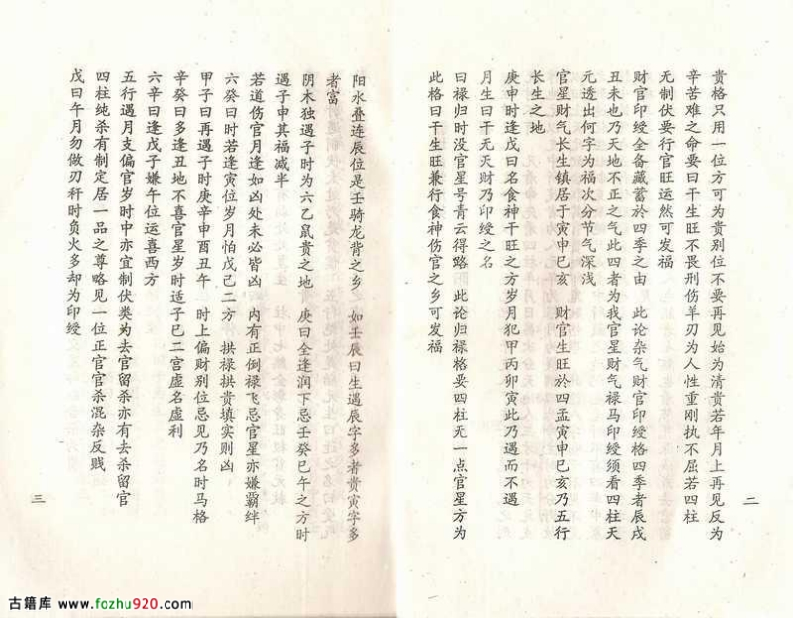 贵格只用一位方可为贵别位不要再见始为清贵若年月上再见反为
辛苦难之命要曰干生旺不畏刑伤羊刃为人性重刚执不屈若四柱
无制伏要行官旺运然可发福
财官印绶全备藏蓄於四季之由　此论杂气财官印绶格四季者辰戌
丑未也乃天地不正之气此四者为我官星财气禄马印绶须看四柱天
元透出何字为福次分节气深浅
官星财气长生镇居于寅申巳亥　财官生旺於四孟寅申巳亥乃五行
长生之地
庚申时逢戊曰名食神干旺之方岁月犯甲丙卯寅此乃遇而不遇
月生曰干无天财乃印绶之名
曰禄归时没官星号青云得路　此论归禄格要四柱无一点官星方为
此格曰干生旺兼行食神伤官之乡可发福
二
阳水叠连辰位是壬骑龙背之乡　如壬辰曰生遇辰字多者贵寅字多
者富
阴木独遇子时为六乙鼠贵之地　庚曰全逢润下忌壬癸巳午之方时
遇子申其福减半
若道伤官月逢如凶处未必皆凶　内有正倒禄飞忌官星亦嫌羁绊
六癸曰时若逢寅位岁月怕戊己二方　拱禄拱贵填实则凶
甲子曰再遇子时庚辛申酉丑午　时上偏财别位忌见乃名时马格
辛癸曰多逢丑地不喜官星岁时适子巳二宫虚名虚利
六辛曰逢戊子嫌午位运喜西方
五行遇月支偏官岁时中亦宜制伏类为去官留杀亦有去杀留官
四柱纯杀有制定居一品之尊略见一位正官官杀混杂反贱
戊曰午月勿做刃秆时负火多却为印绶
三
古籍库 www.fozhu920.com